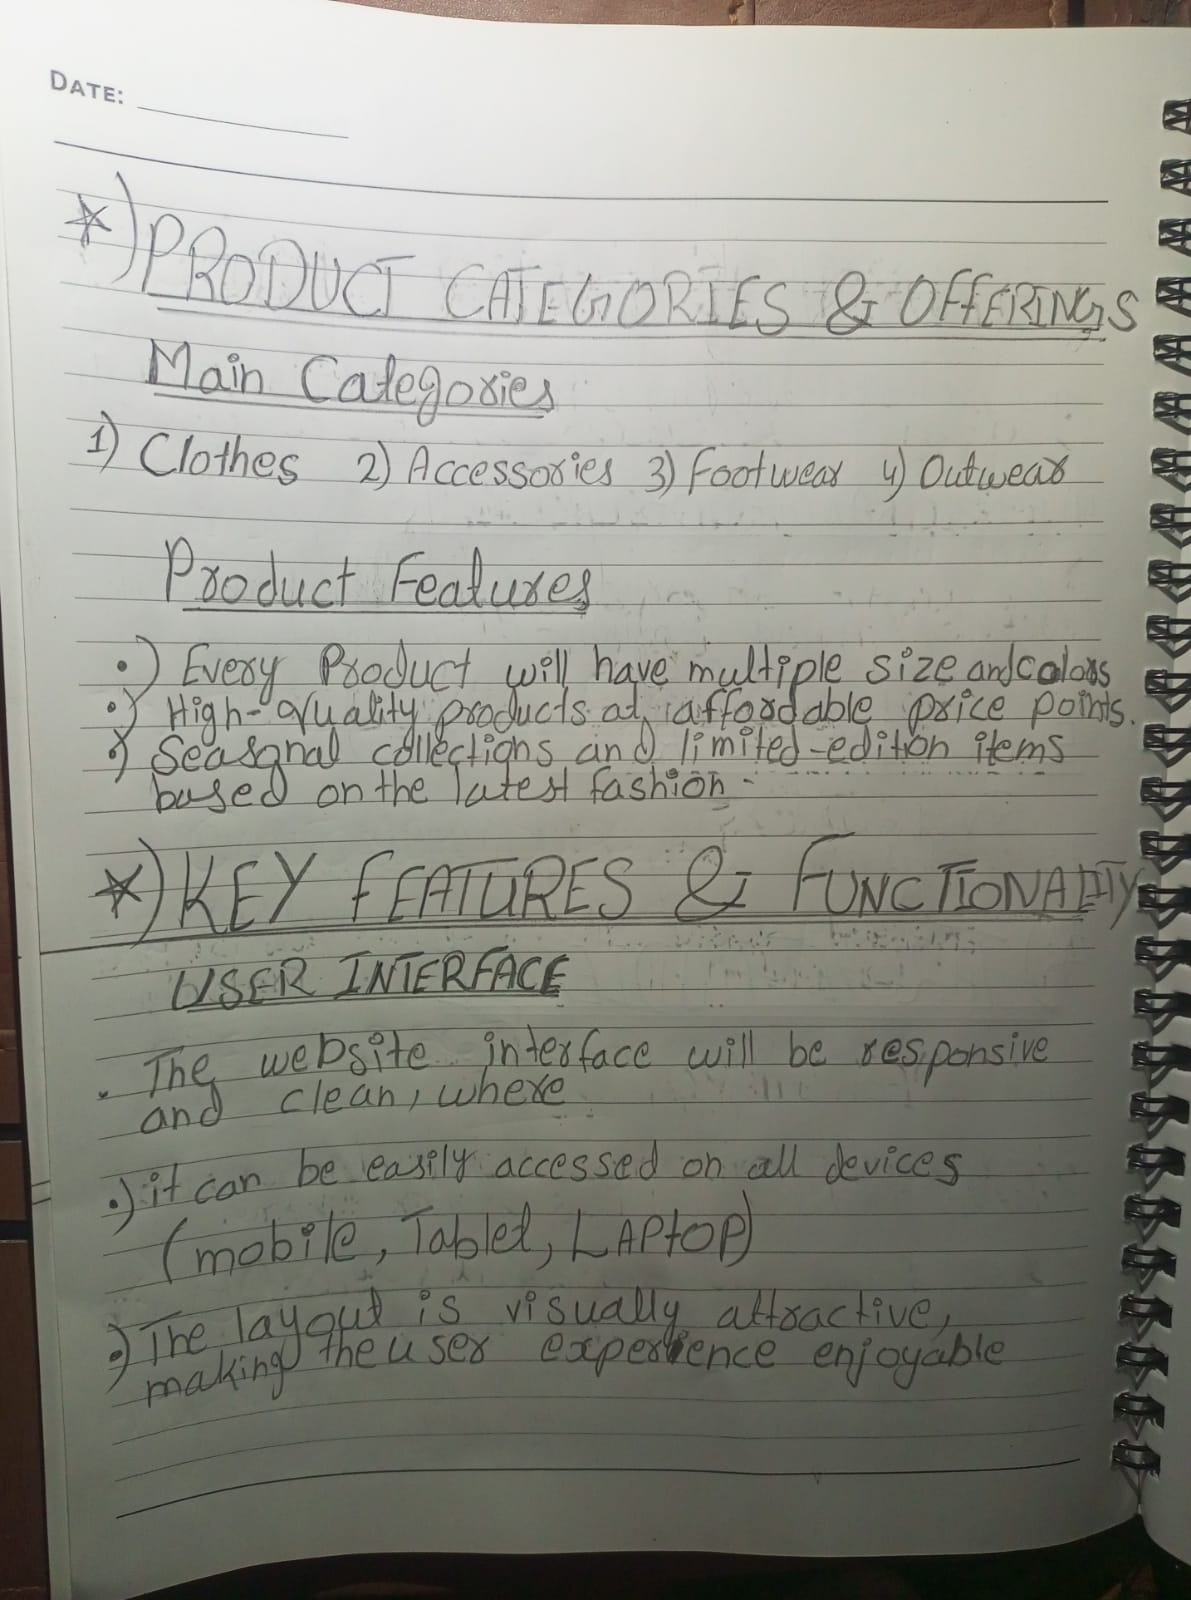 DATE:
*) PRODUCT CATEGORIES & OFFERINGS
Main Categories
1) Clothes 2) Accessories 3) Footwear 4) Outwear
Product Features
•) Every Product will have multiple size and colors
•) High-quality products at affordable price points.
•) Seasonal collections and limited-edition items
based on the latest fashion -
*) KEY FEATURES & FUNCTIONALITY
USER INTERFACE
. The website interface will be responsive
and clean, where
•) it can be easily accessed on all devices
(mobile, Tablet, LAPtOP)
•) The layout is visually attractive,
making the user experience enjoyable